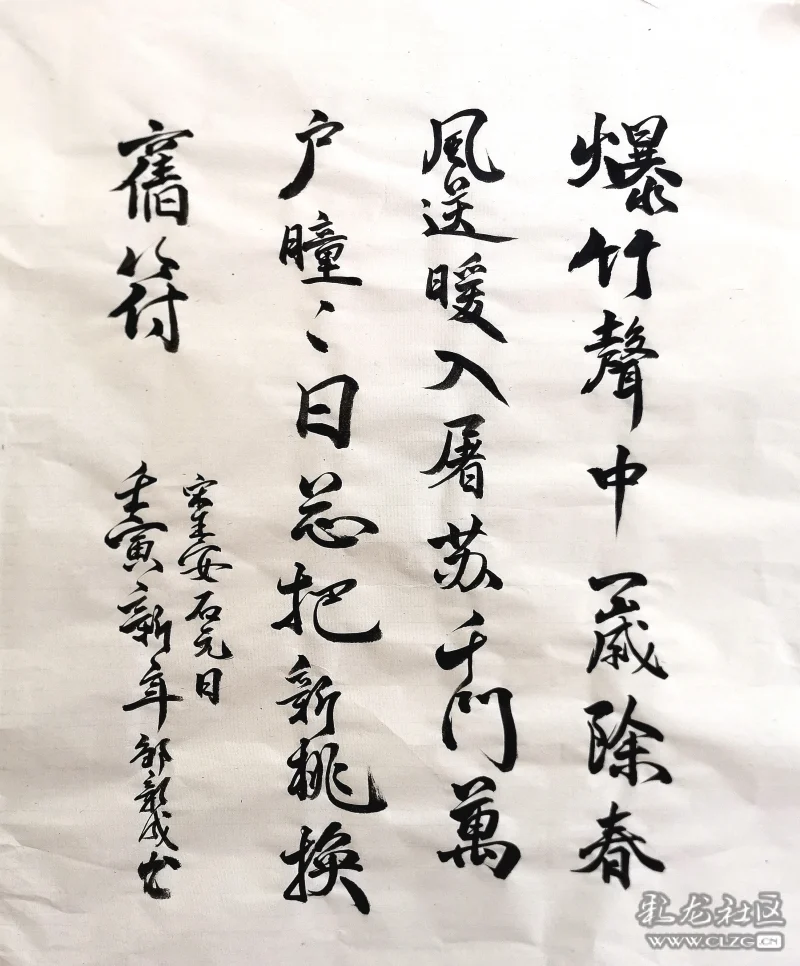 爆竹聲中一嵗除春
風送暖入屠苏千門萬
户曈〻日总把新桃换
舊符
宋王安石元日
壬寅新年邹新成书
彩龙社区
WWW.CLZG.CN